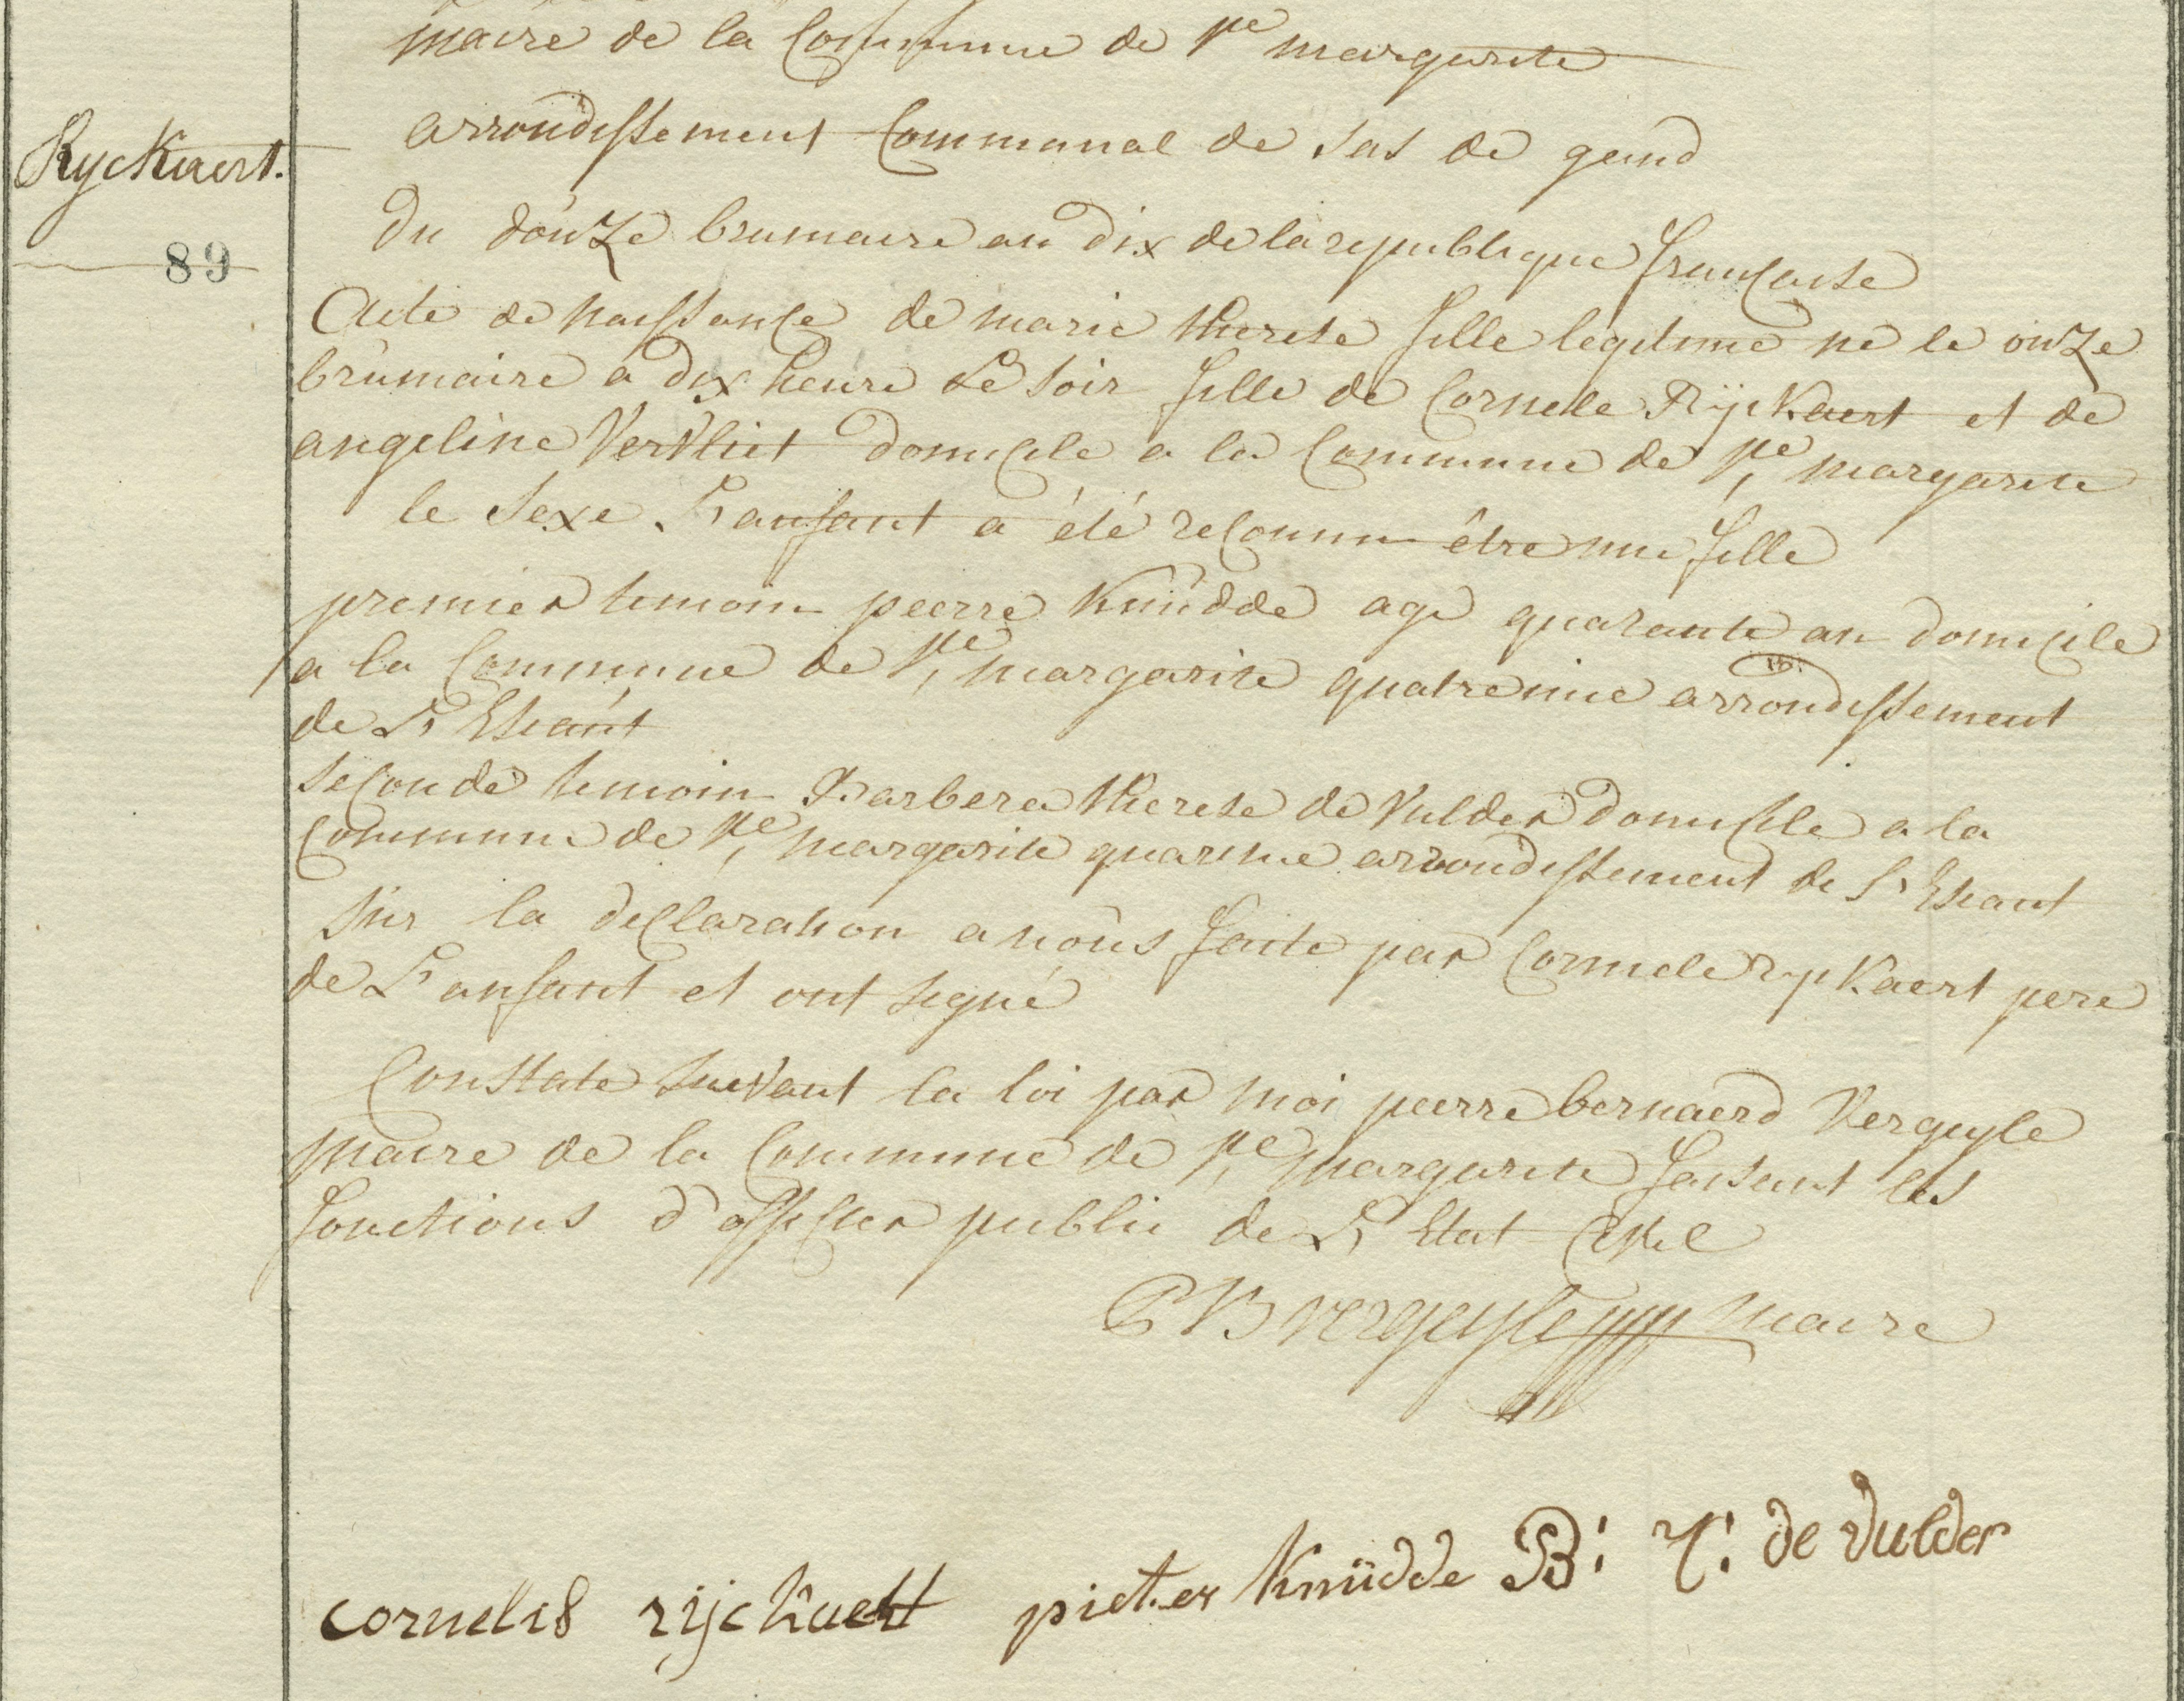 maire de la Commune de Ste margerite
arrondissement Communal de sas de gand
Ryckaert.
du douze brumaire an dix de la republique francaise
89
Acte de naissance de marie therese fille legitime né le onze
brumaire a dix heure Le soir fille de Cornelle Rÿckaert et de
angeline Vervliet domicile a la Commune de Ste margarite
le sexe L'anfant a été reconnu être une fille
premier temoin pierre Knüdde age quarante an domicile
a la Commune de Ste margarite quatreime arrondissement
de L'Escaut
seconde temoin Barbera therese de Vulder domicile a la
Commune de Ste margarite quareme arrondissement de L'Escaut
sur la declaration a nous faite par Cornele Ryckaert pere
de L'anfant et ont signé
Constate suivant la loi par moi pierre bernaerd Vergeyle
maire de la Commune de Ste margarite faisant les
fonctions d'officier public de L'Etat Civil
P B vergeyle maire
cornelis rijckaert pieter Knüdde B: T: de Vulder